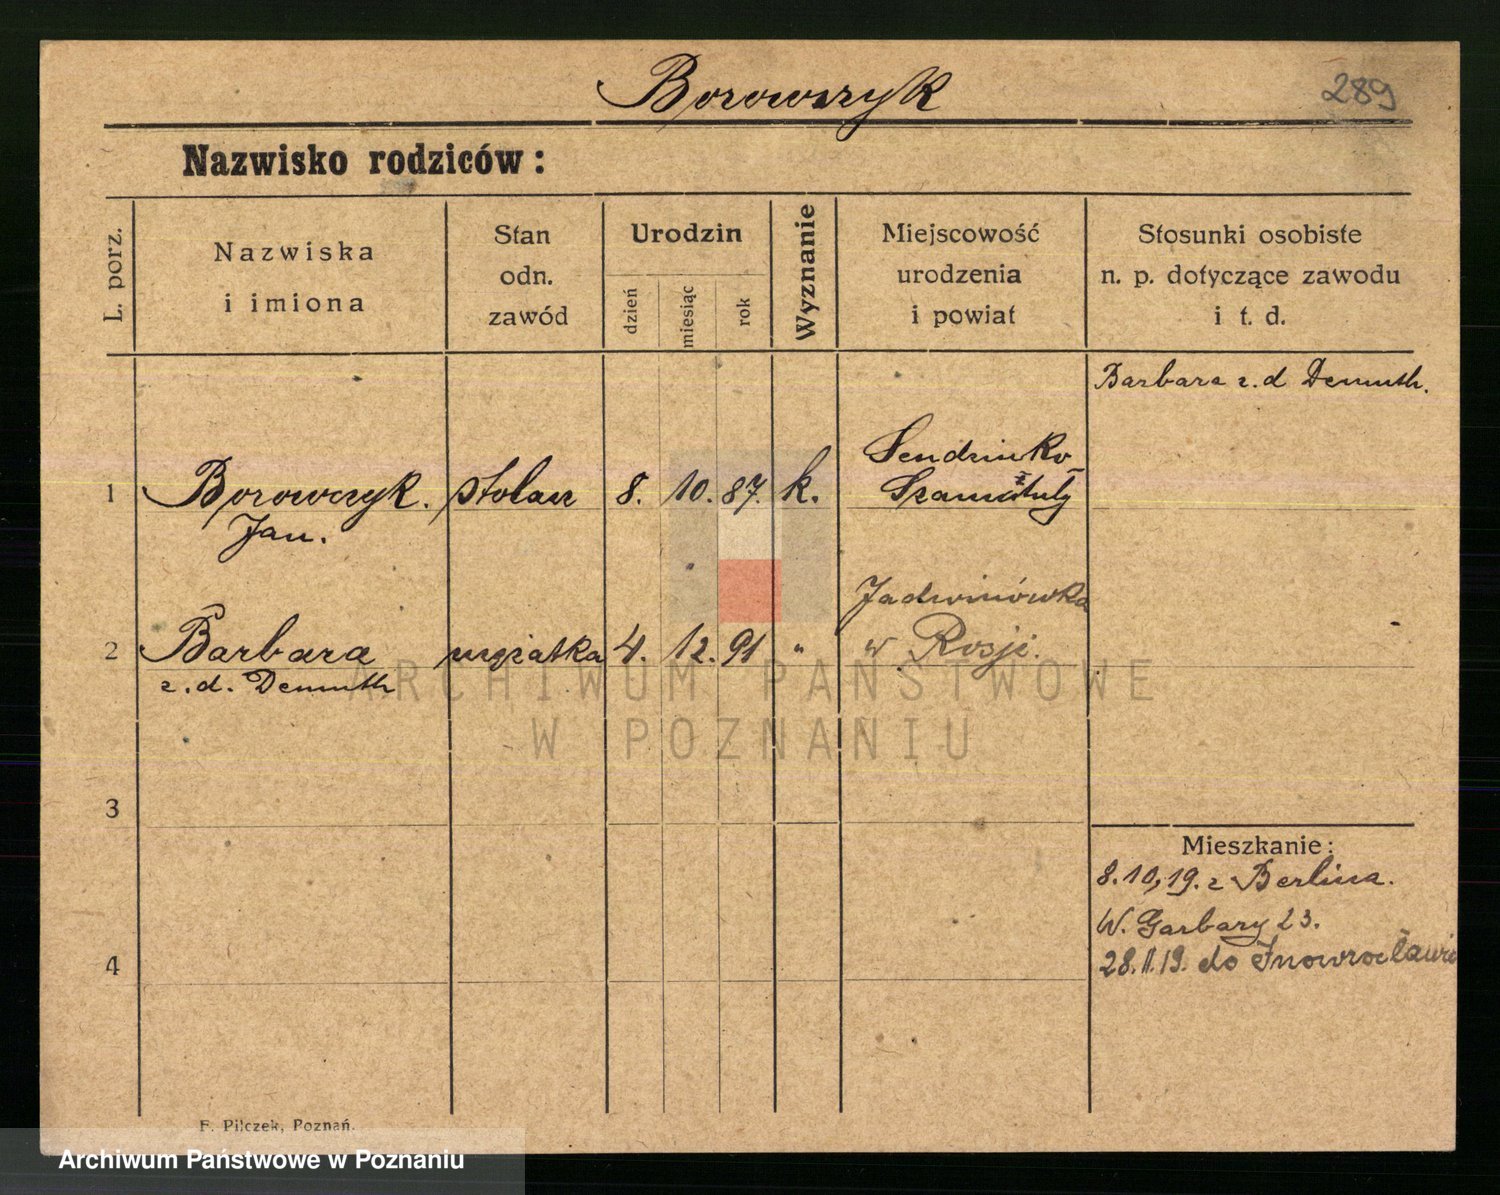 Borowczyk
289
Nazwisko rodziców:
L. porz.
Nazwiska
i imiona
Stan
odn.
zawód
Urodzin
dzień
miesiąc
rok
Wyznanie
Miejscowość
urodzenia
i powiat
Stosunki osobiste
n. p. dotyczące zawodu
i t. d.
Barbara z.d Demuth.
Sendzinko
1 Borowczyk. stolarz 8. 10. 87. k. Szamotuły
Jan.
Jadwinówka
2 Barbara mężatka 4. 12. 91 " w Rosji.
z.d. Demuth
ARCHIWUM PAŃSTWOWE
W POZNANIU
3
Mieszkanie:
8.10,19. z Berlina.
W. Garbary 23.
4
28.11.19. do Inowrocławia
F. Pilczek, Poznań.
Archiwum Państwowe w Poznaniu